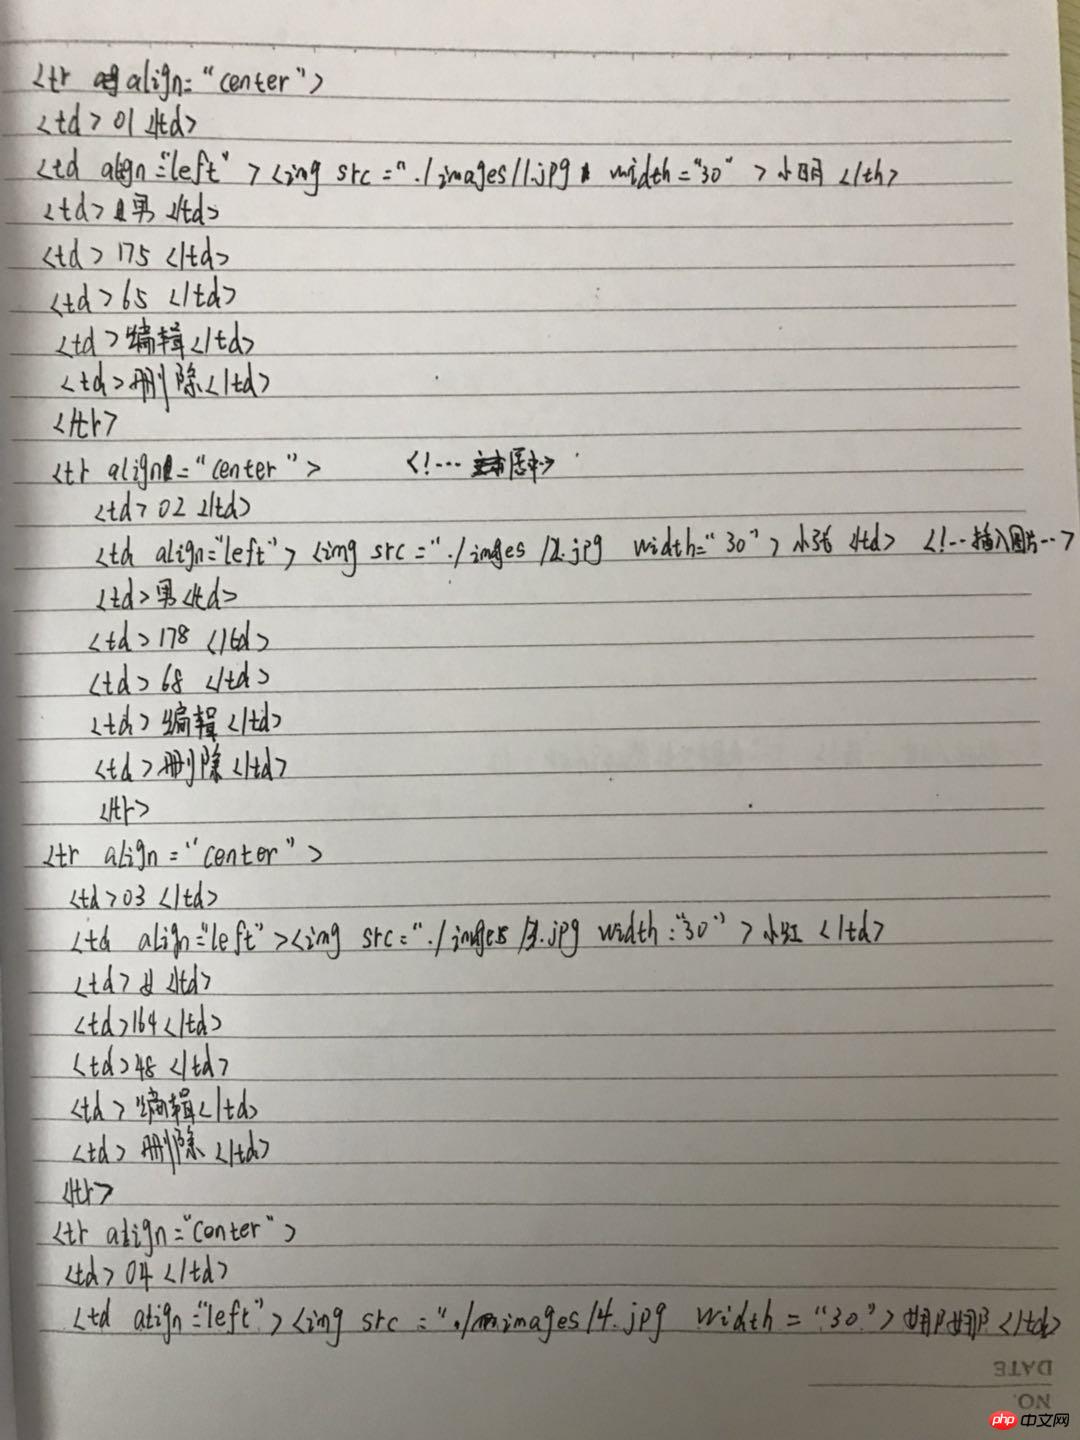 <tr align="center">
<td>01</td>
<td align="left"><img src="./images/1.jpg width="30">小明</th>
<td>男</td>
<td>175</td>
<td>65</td>
<td>编辑</td>
<td>删除</td>
</tr>
<tr align="center"> <!--- 居中->
<td>02</td>
<td align="left"><img src="./images/2.jpg width="30">小张</td> <!--插入图片-->
<td>男</td>
<td>178</td>
<td>68</td>
<td>编辑</td>
<td>删除</td>
</tr>
<tr align="center">
<td>03</td>
<td align="left"><img src="./images/3.jpg width="30">小红</td>
<td>女</td>
<td>164</td>
<td>48</td>
<td>编辑</td>
<td>删除</td>
</tr>
<tr align="center">
<td>04</td>
<td align="left"><img src="./images/4.jpg width="30">娜娜</td>
DATE
NO.
php中文网